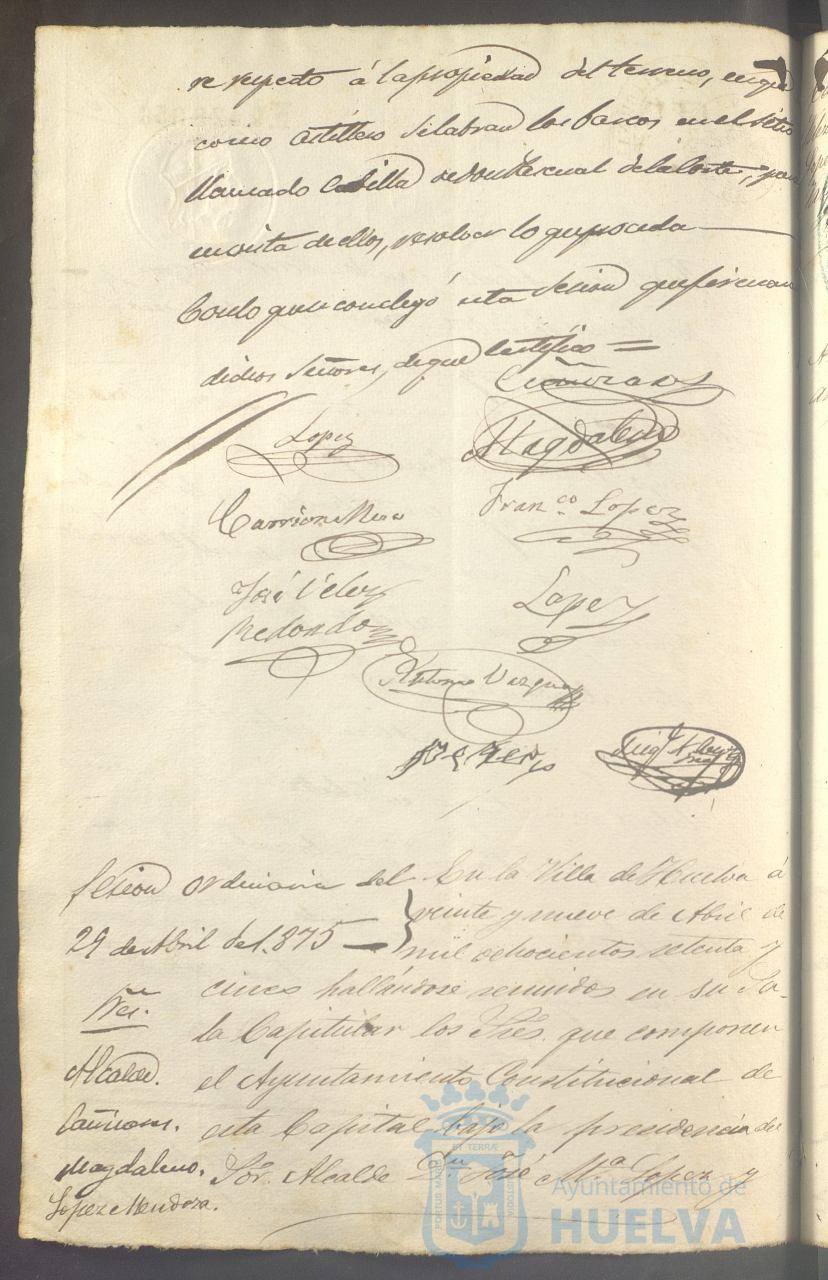 respecto á la propiedad del terreno, en que
como astillero se labran los barcos en el sitio
llamado Casilla de la Corte, para
en vista de ellos, resolver lo que proceda
Con lo que se concluyó esta Sesion que firman
dichos Señores, de que Certifico =
Lopez
Magdaleno
Carrion Mesa
Franco. Lopez
José Velez
Redondo
Lopez
Antonio Vazquez
Sesion ordinaria del
29 de Abril de 1.875
Sres.
Alcalde.
Cañizares.
Magdaleno.
Lopez Mendoza.
En la Villa de Huelva á
veinte y nueve de Abril de
mil ochocientos setenta y
cinco hallandose reunidos en su Sa-
la Capitular los Sres. que componen
el Ayuntamiento Constitucional de
esta Capital bajo la presidencia del
Sor. Alcalde Dn. José Ma. Lopez y
PORTUS MARIS
ET TERRÆ
CUSTODIA
Ayuntamiento de
HUELVA